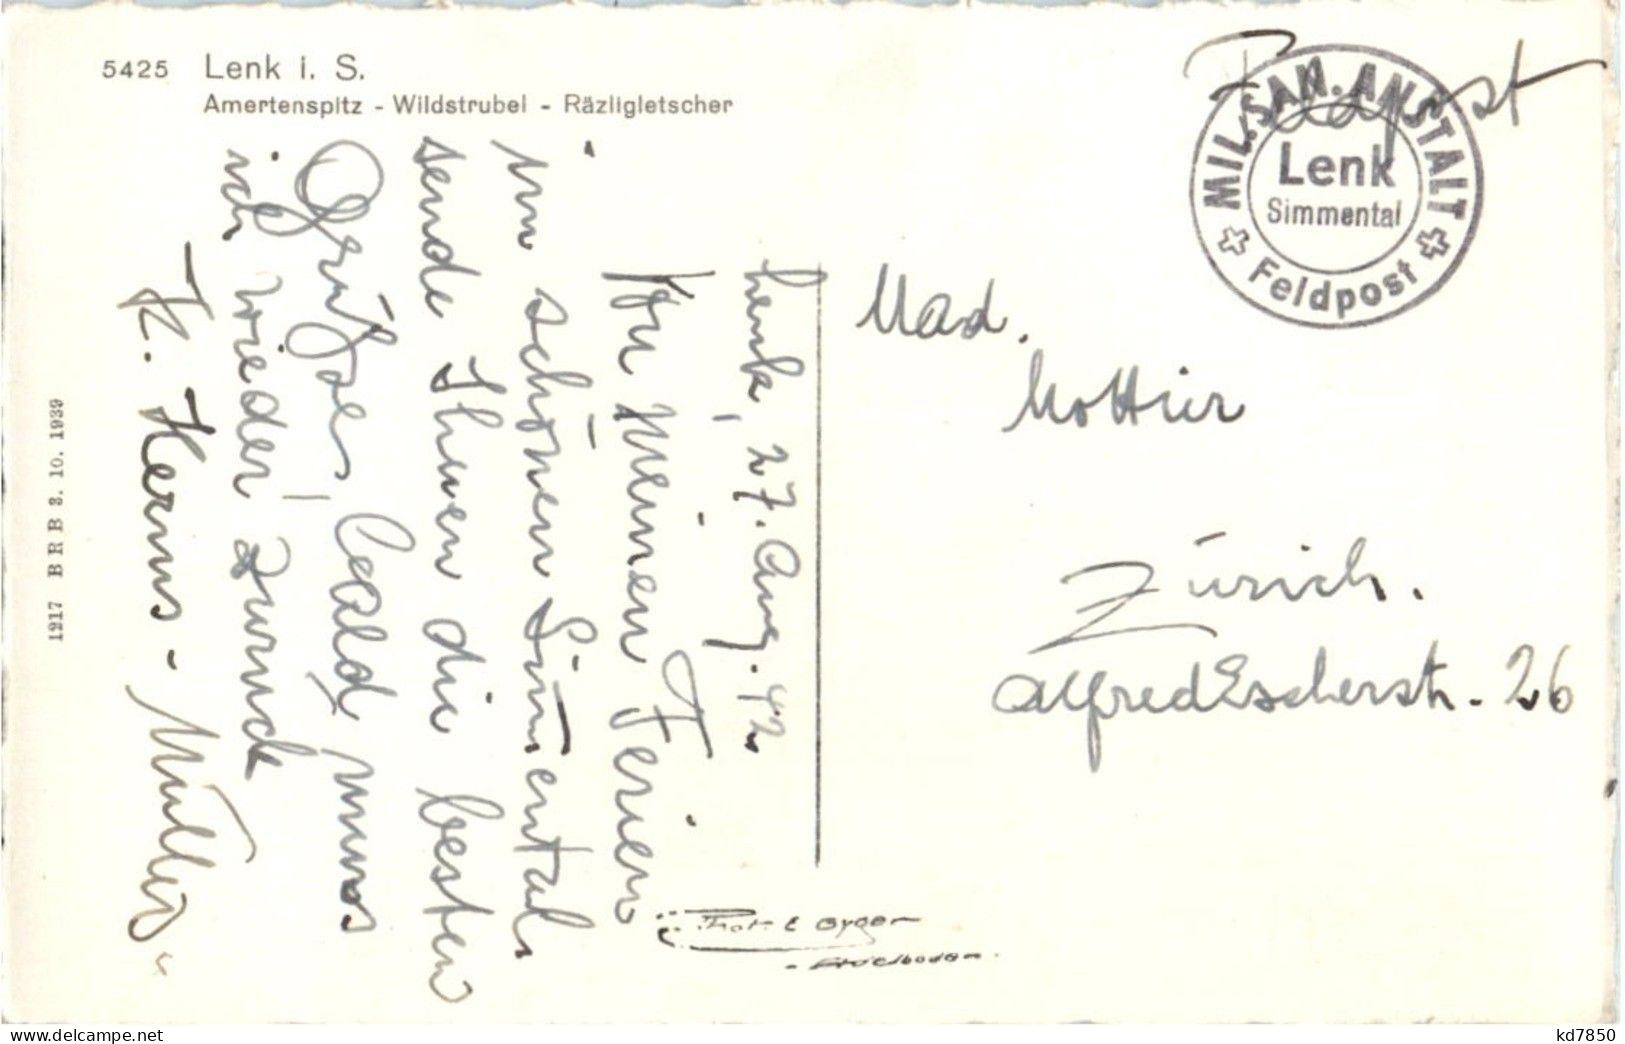 5425 Lenk i. S.
Amertenspitz - Wildstrubel - Räzligletscher
Lenk, 27. Aug. 42
Von meinen Ferien
im schönen Simental
sende Ihnen die besten
Grüsse, bald muss
ich wieder zurück
K. Herms - Müller
1917 B R B 3. 10. 1939
Phot. E Gyger
- Adelboden -
Feldpost
MIL. SAN. ANSTALT
Lenk
Simmental
Feldpost
Mad.
Mottier
Zürich.
Alfred Escherstr. 26
delcampe.net
kd7850